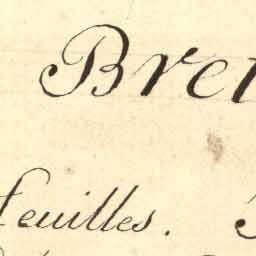 Bret
feuilles.